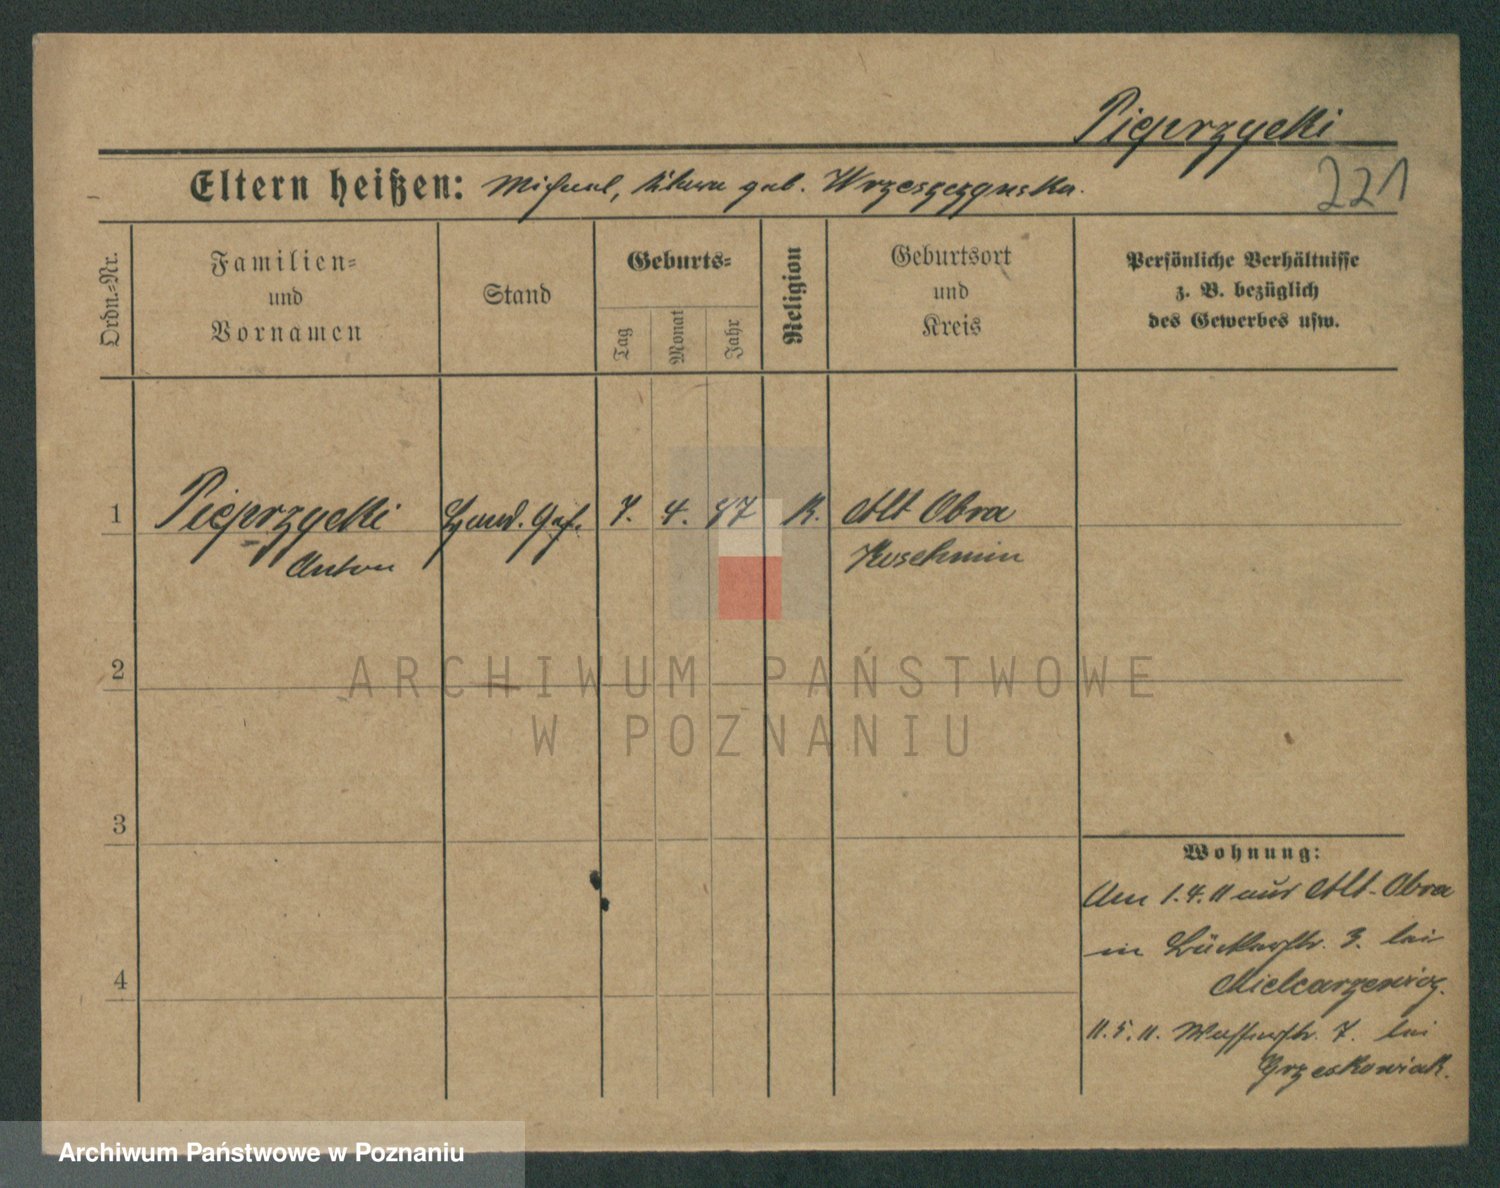 Pieprzycki
221
Eltern heißen: Michael, geb. Wrzeszczynska.
Ordn.-Nr.
Familien-
und
Vornamen
Stand
Geburts-
Tag
Monat
Jahr
Religion
Geburtsort
und
Kreis
Persönliche Verhältnisse
z. B. bezüglich
des Gewerbes usw.
1 Pieprzycki 7. 4. 87 K. Alt Obra
Anton Koschmin
2
3
4
Wohnung:
Am 1.4.11 aus Alt-Obra
in 3. bei
Mielcarzewicz.
11.5.11. Wasserstr. 7. bei
Grzeskowiak.
ARCHIWUM PAŃSTWOWE
W POZNANIU
Archiwum Państwowe w Poznaniu